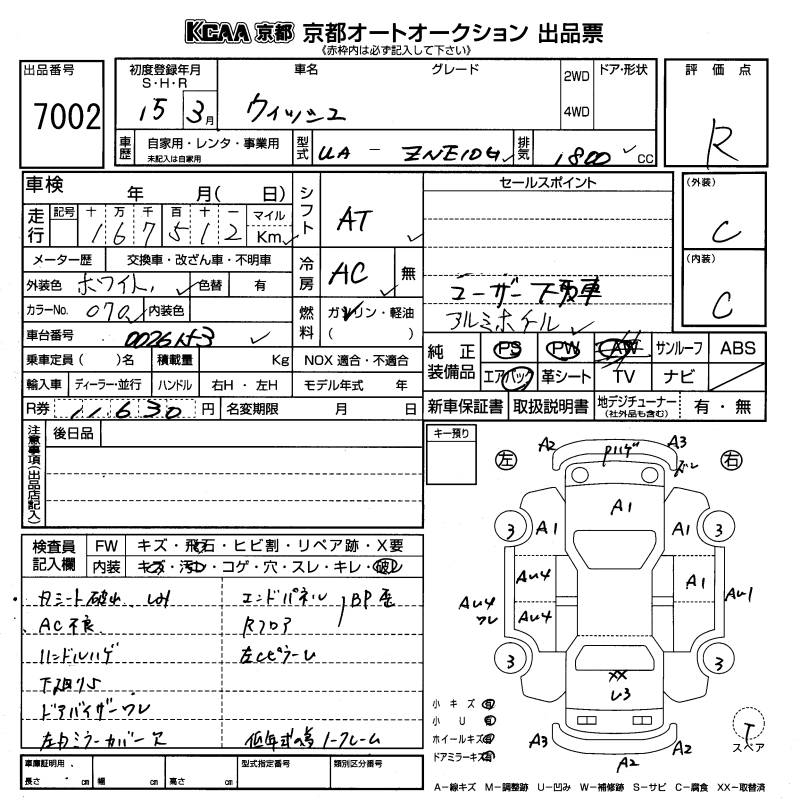 KCAA 京都 京都オートオークション 出品票
《赤枠内は必ず記入して下さい》
出品番号
7002
初度登録年月
S・H・R
15 3月
車名
グレード
ウィッシュ
2WD
4WD
ドア・形状
評価点
R
車歴
自家用・レンタ・事業用
未記入は自家用
型式
UA - ZNE10G
排気
1800 CC
車検
年 月( 日)
シフト
AT
走行
記号 十 万 千 百 十 一 マイル
1 6 7 5 1 2 Km
メーター歴 交換車・改ざん車・不明車
冷房
AC 無
外装色 ホワイト 色替 有
カラーNo. 070 内装色
燃料
ガソリン・軽油
( )
車台番号
乗車定員( )名 積載量 Kg NOX 適合・不適合
輸入車 ディーラー・並行 ハンドル 右H・左H モデル年式 年
R券 11630 円 名変期限 月 日
セールスポイント
ユーザー下取車
アルミホイール
(外装)
C
(内装)
C
純正装備品
PS PW AW サンルーフ ABS
エアバック 革シート TV ナビ
新車保証書 取扱説明書 地デジチューナー
(社外品も含む)
有・無
注意事項(出品店記入)
後日品
キー預り
検査員記入欄
FW キズ・飛石・ヒビ割・リペア跡・X要
内装 キズ・汚れ・コゲ・穴・スレ・キレ・破れ
・Dシート破れ シミ
AC不良
ハンドルハゲ
下廻りS
ドアバイザーワレ
左ドアミラーカバー欠
エンドパネル
Rフロア
BP歪
左Cピラーし
低年式の為ノークレーム
左 右
A2 Pハゲ A3
ズレ
A1
3 A1 A1 3
AU4 A1
AU4 ワレ
AU4
AU1
3 3
XX
U3
A3 A2
A2
小キズ 有
小U 有
ホイールキズ 有
ドアミラーキズ 有
T
スペア
車庫証明用
長さ cm 幅 cm 高さ cm
型式指定番号
類別区分番号
A−線キズ M−調整跡 U−凹み W−補修跡 S−サビ C−腐食 XX−取替済